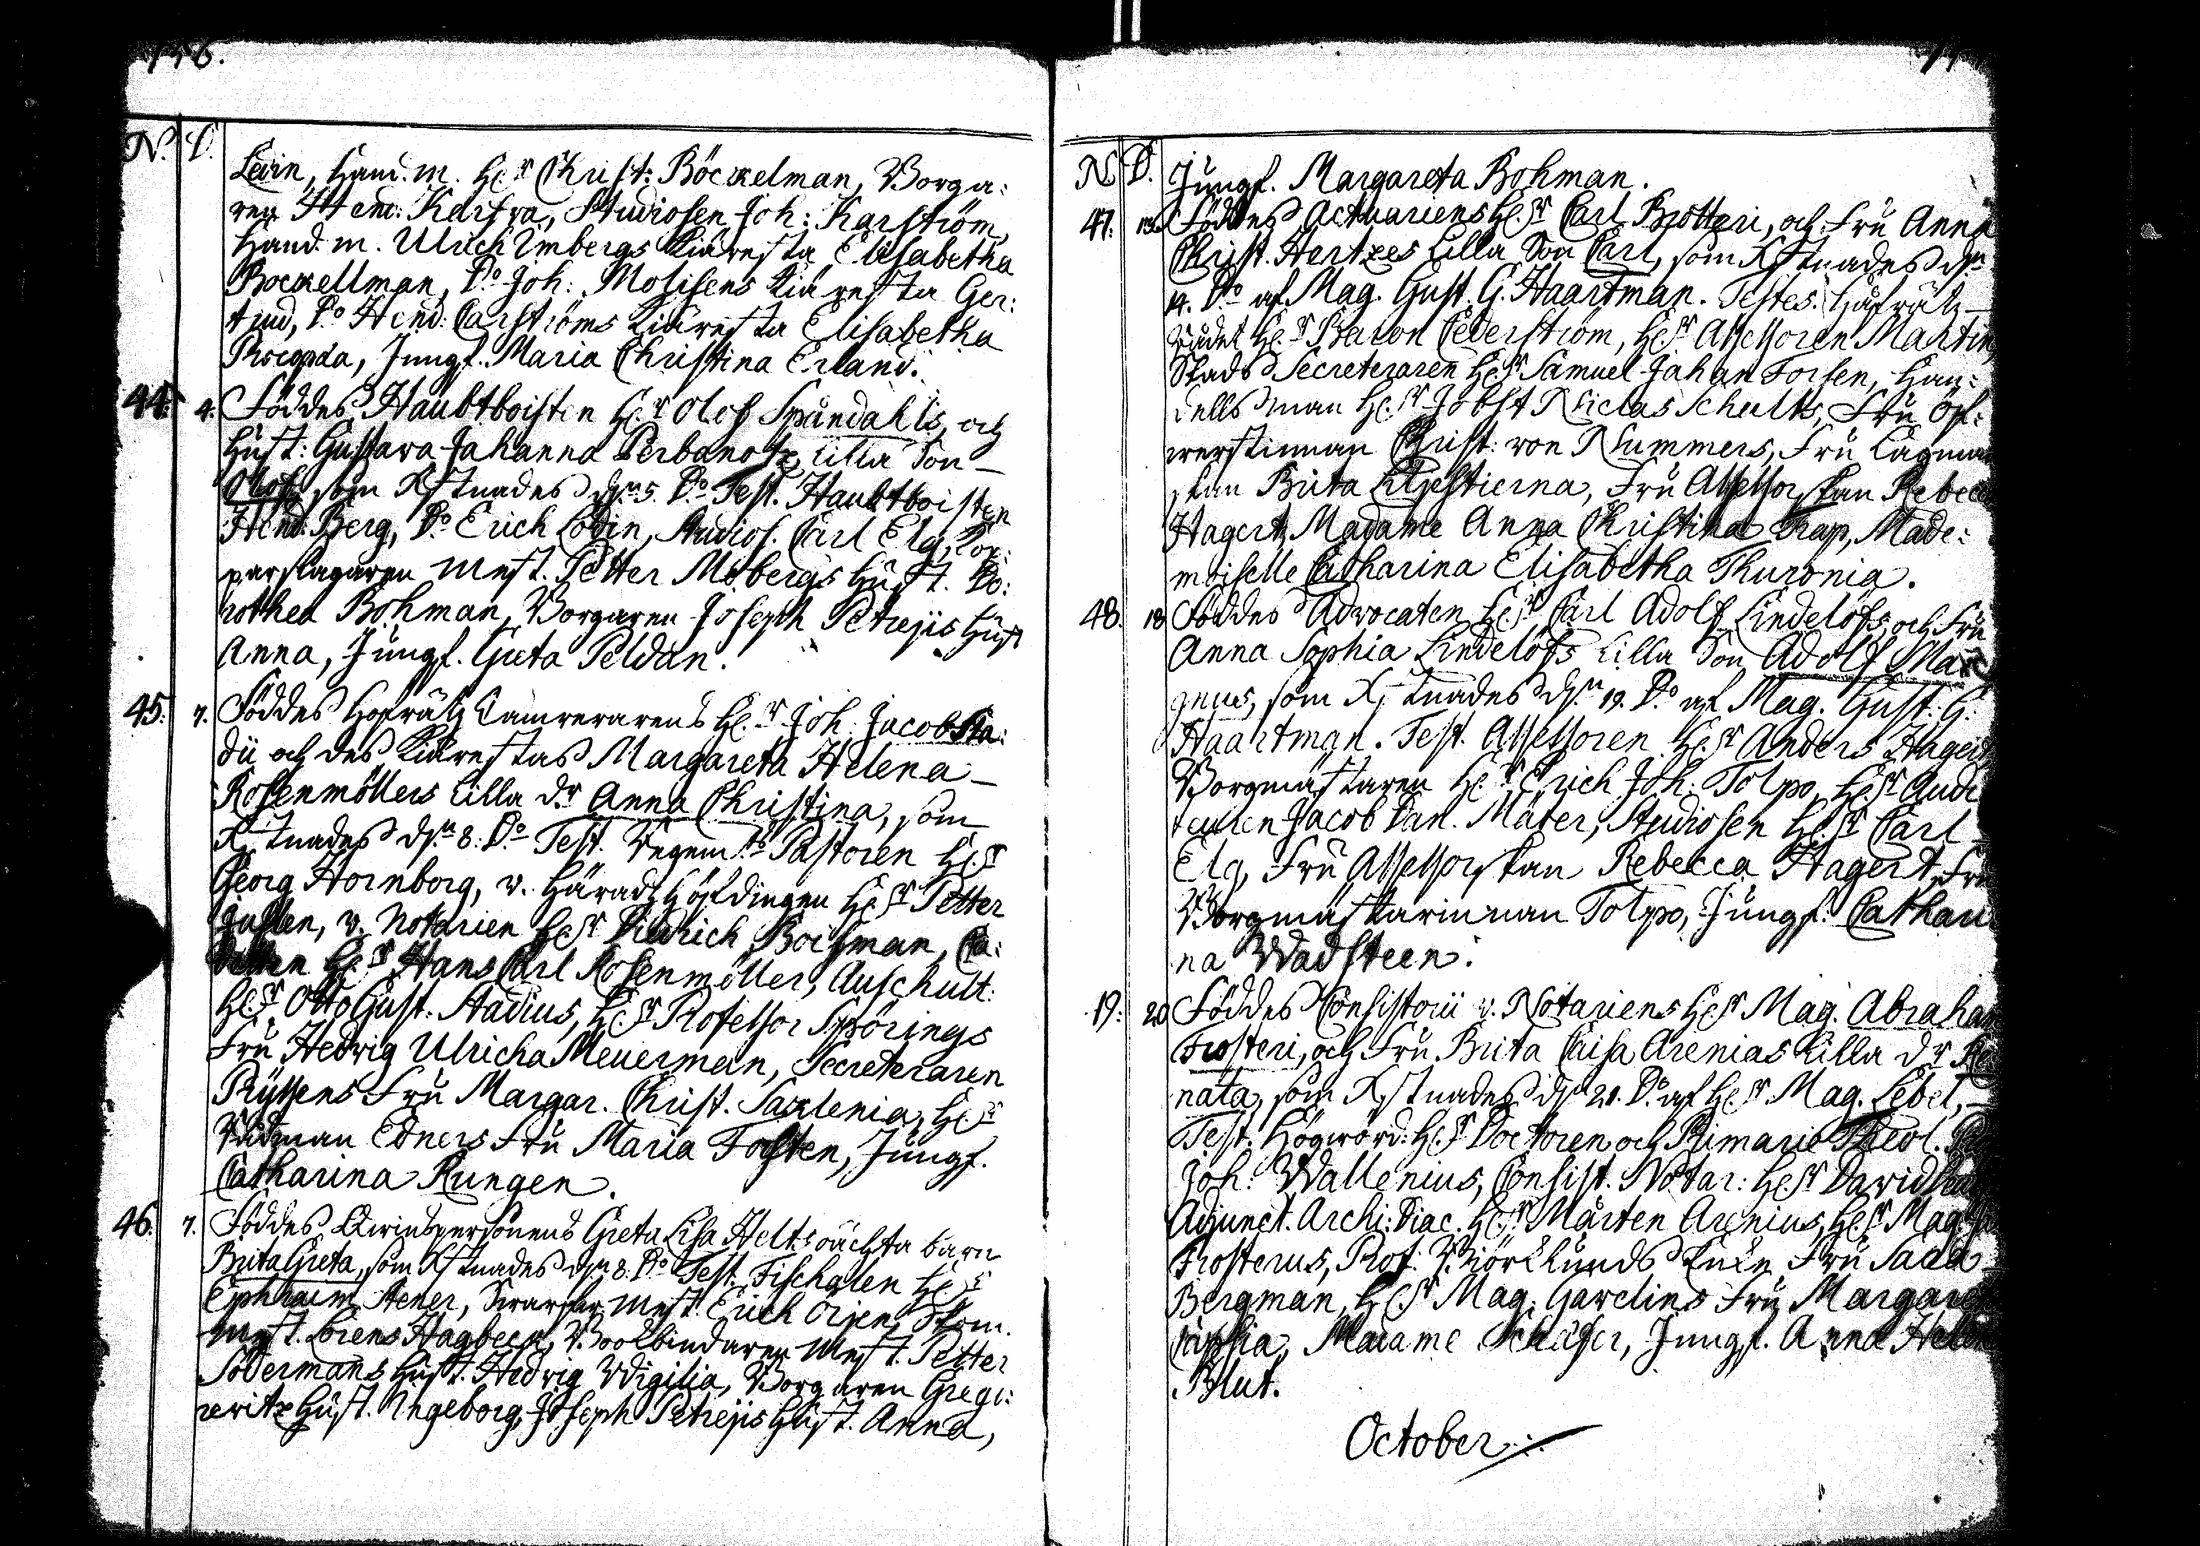 146.
N. D.
Levin, Hand. m. He.r Christ: Böckelman, Borga:
ren Hend: Karfva, Studiosen Joh: Karström,
Hand. m. Ulrich Imbergs Kiäresta Elisabetha
Bockellman, Do Joh: Molisens Kiäresta Ger:
trud, Do Hend: Carströms Kiäresta Elisabetha
Jungf. Maria Christina Erland.
44. 4. Föddes Haubtboisten He.r Olof Spundahls, och
Hust: Gustava Johanna Perbanotz lilla Son
Olof, som Xstnades d.n 5. Do Test. Haubtboisten
Hend: Berg, Do Erich Lodin, Studios. Carl Elg, Kop:
parslagaren Mest. Petter Mobergs Hust. Do:
rothea Bohman, Borgaren Joseph Petrejis Hust
Anna, Jungf. Greta Peldan.
45. 7. Föddes Hofrätz Camrerarens He.r Joh. Jacob Sta:
dii och des Kiärestas Margareta Helena
Rosenmöllers lilla d.r Anna Christina, som
Xstnades d.n 8. Do Test. Regem.ts Pastoren He.r
Georg Hornborg, v. Häradz Höfdingen He.r Petter
Juslen, v. Notarien He.r Didrich Boisman, Ca:
He.r Hans Carl Rosenmöller, Auschult:
He.r Otto Gust. Stadius, He.r Professor Spörings
Fru Hedvig Ulricha Meuerman, Secreteraren
Rytzens Fru Margar. Christ. Saxlenia, He.r
Rådman Edners Fru Maria Forsten, Jungf.
Catharina Rungen.
46. 7. Föddes Qwinspersonens Greta Lisa Helts oächta barn
Brita Greta, som Xstnades d.n 8. Do Test. Fischalen He.r
Ephraim Aener, Swarfvar Mest. Erich Orjen, Skom.
Mest. Lorens Hagbeck, Bookbindaren Mest. Petter
Södermans Hust. Hedvig Wigilia, Borgaren Gregi:
rewitz Hust. Ingeborg, Joseph Petrejis Hust. Anna,
N. D.
Jungf. Margareta Bohman.
47. 13. Föddes Actuariens He.r Carl Brotteri, och Fru Anna
Christ. Hertzes lilla Son Carl, som Xstnades d.n
14. Do af Mag. Gust. G. Haartman. Testes. Håfrätz
Rådet He.r Baron Cederström, He.r Assessoren Martin,
Stads Secreteraren He.r Samuel Johan Forsen, Han:
dells man He.r Jobst Niclas Schults, Fru Öf:
werstinnan Christ: von Nummers, Fru Lagman
skan Brita Lilljestierna, Fru Assessorskan Rebecca
Hagert, Madame Anna Christina Trap, Made:
moiselle Catharina Elisabetha Thuronia.
48. 18 Föddes Advocaten He.r Carl Adolf Lindelöfs, och Fru
Anna Sophia Lindelöfs lilla Son Adolf Mag
nus, som Xstnades d.n 19. Do af Mag. Gust. G.
Haartman. Test. Assessoren He.r Anders Hagert,
Borgmästaren He.r Erich Joh: Tolpo, He.r Audi
teuren Jacob Dan. Mäter, Studiosen He.r Carl
Elg, Fru Assessorskan Rebecca Hagert, Fru
Borgmästarinnan Tolpo, Jungf: Cathari
na Wadsteen.
19: 20 Föddes Consistorii v. Notariens He.r Mag. Abraham
Frosteri, och Fru Brita Caisa Arenias lilla d.r Re
nata, som Xstnades d.n 21. Do af He.r Mag. Lebel,
Test: Högwörd: He.r Doctoren och Primarie Theol.
Joh: Wallenius, Consist. Notar: He.r David
Adjunct. Archi: Diac. He.r Mårten Arenius, He.r Mag.
Frosterus, Prof: Biörklunds Enka Fru Sara
Bergman, He.r Mag. Gavelins Fru Margareta
Caplia, Madame Schäfer, Jungf. Anna Helena
Blut.
October